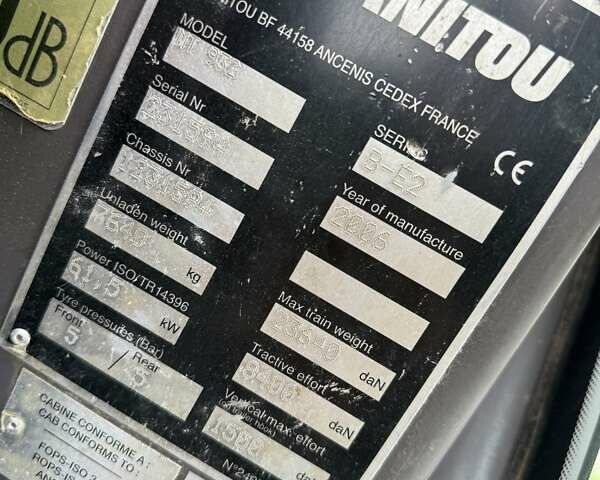 dB
MANITOU
MANITOU BF 44158 ANCENIS CEDEX FRANCE
MODEL
MT 932
SERIES
3-E2
CE
Serial Nr
Chassis Nr
Year of manufacture
2006
Unladen weight
kg
Power ISO/TR14396
61,5
kW
Max train weight
23640
daN
Tyre pressures (Bar)
Front
5
/
Rear
5
Tractive effort
8400
daN
Vertical max. effort
1500
daN
CABINE CONFORME A :
CAB CONFORMS TO :
FOPS-ISO 3
ROPS-IS